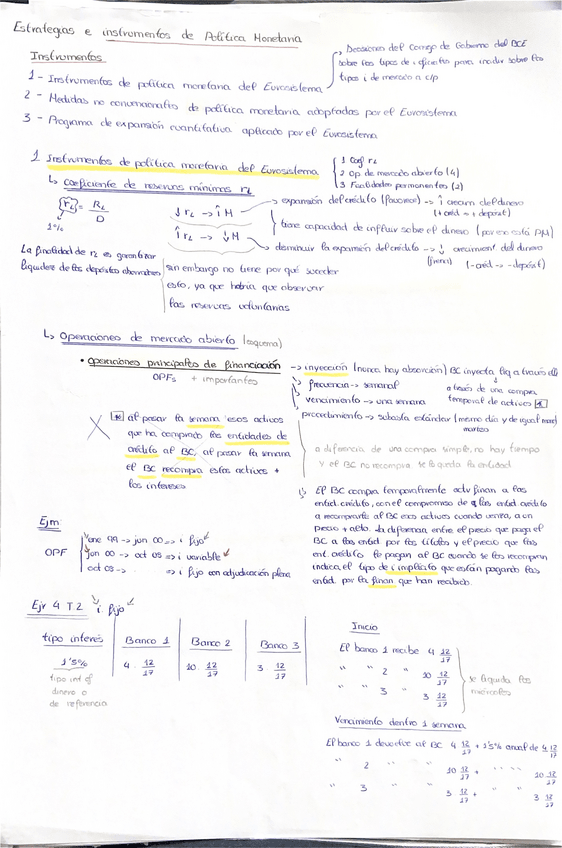 Estrategias e instrumentos de Política Monetaria
Instrumentos
→ Decisiones del Consejo de Gobierno del BCE
sobre los tipos de i oficiales para incidir sobre los
tipos i de mercado a c/p
1 - Instrumentos de política monetaria del Eurosistema
2 - Medidas no convencionales de política monetaria adoptadas por el Eurosistema
3 - Programa de expansión cuantitativa aplicado por el Eurosistema
1. Instrumentos de política monetaria del Eurosistema
1 Coef rL
2 Op de mercado abierto (4)
3 Facilidades permanentes (2)
↳ Coeficiente de reservas mínimas rL
rL = RL / D
1%
↓ rL → ↑ M
→ expansión del crédito (favorece) → ↑ crecim del dinero
(+ créd = + depósit)
tiene capacidad de influir sobre el dinero (por eso está PM)
↑ rL → ↓ M
→ disminuir la expansión del crédito → ↓ crecimient del dinero
(frena) (- créd → - depósit)
La finalidad de rL es garantizar
liquidez de los depósitos
sin embargo no tiene por qué suceder
esto, ya que habría que observar
las reservas voluntarias
↳ Operaciones de mercado abierto (esquema)
• Operaciones principales de financiación
OPFs + importantes
→ inyección (nunca hay absorción) BC inyecta liq a través de
una compra
temporal de activos *
→ frecuencia → semanal
→ vencimiento → una semana
procedimiento → subasta estándar (mismo día y de igual
martes
* al pasar la semana esos activos
que ha comprado las entidades de
crédito al BC, al pasar la semana
el BC recompra estos activos +
los intereses
a diferencia de una compra simple, no hay tiempo
y el BC no recompra se lo queda la entidad
El BC compra temporalmente activ finan a las
entid crédito, con el compromiso de q las entid crédito
a recomprarle al BC esos activos cuando venza, a un
precio + alto. La diferencia entre el precio que paga el
BC a las entid por los títulos y el precio que las
ent. crédito le pagan al BC cuando se los recompran
indica, el tipo de i implícito que están pagando las
entid. por la finan que han recibido.
Ejm
OPF
ene 99 → jun 00 → i fijo
jun 00 → oct 08 → i variable
oct 08 → → i fijo con adjudicación plena
Ejr 4 T.2 i. fijo
tipo interés | Banco 1 | Banco 2 | Banco 3
1'5% | 4 · 12/17 | 10 · 12/17 | 3 · 12/17
tipo int of
dinero o
de referencia
Inicio
El banco 1 recibe 4 12/17
" " 2 " 10 12/17
" " 3 " 3 12/17
se liquida los
miércoles
Vencimiento dentro 1 semana
El banco 1 devuelve al BC 4 12/17 + 1'5% anual de 4 12/17
" 2 " " 10 12/17 + " " " 10 12/17
" 3 " " 3 12/17 + " " 3 12/17